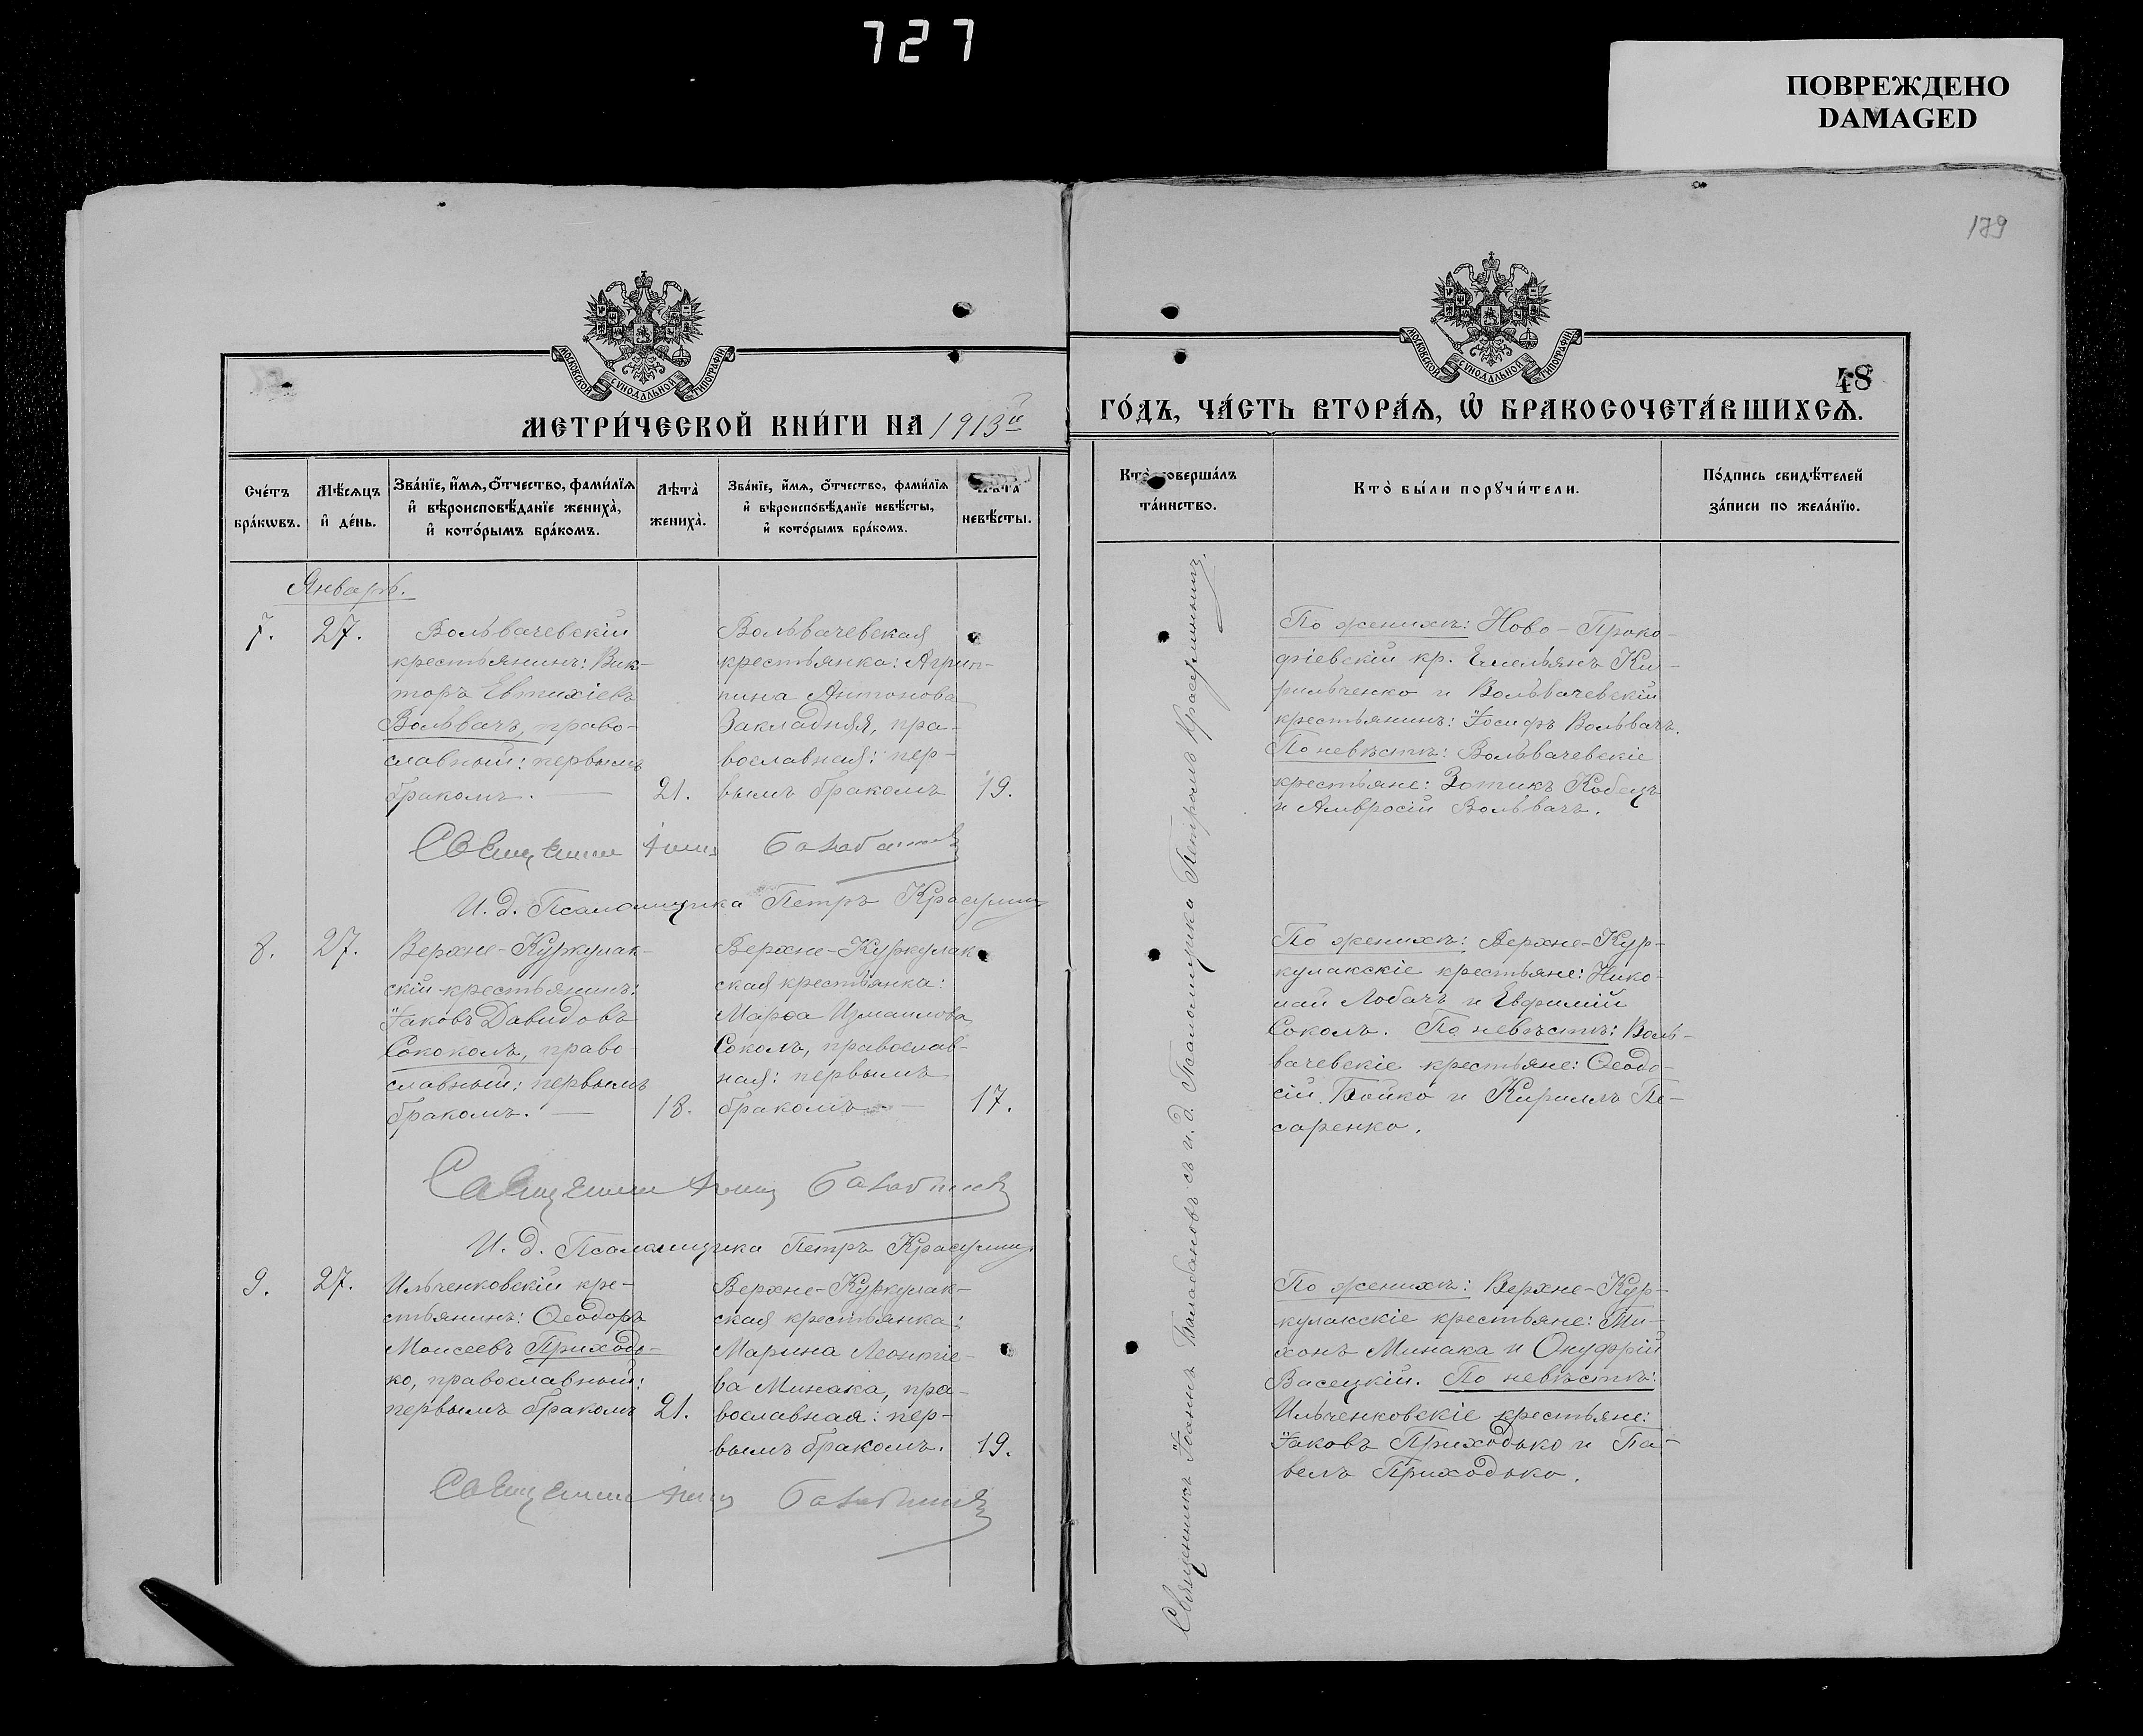 727
ПОВРЕЖДЕНО
DAMAGED
179
МОСКОВСКОЙ СУНОДАЛЬНОЙ ТИПОГРАФІИ
МОСКОВСКОЙ СУНОДАЛЬНОЙ ТИПОГРАФІИ
48
МЕТРИ́ЧЕСКОЙ КНИ́ГИ НА 1913й
ГО́ДЪ, ЧА́СТЬ ВТОРА́Ѧ, Ѡ҆ БРАКОСОЧЕТА́ВШИХСѦ.
Сче́тъ
бра́кѡвъ.
Мѣ́сѧцъ
и҆ де́нь.
Зва́нїе, и҆́мѧ, ѻ҆́тчество, фами́лїѧ
и҆ вѣроисповѣ́данїе жениха̀,
и҆ кото́рымъ бра́комъ.
Лѣ́та̀
жениха̀.
Зва́нїе, и҆́мѧ, ѻ҆́тчество, фами́лїѧ
и҆ вѣроисповѣ́данїе невѣ́сты,
и҆ кото́рымъ бра́комъ.
Лѣ́та̀
невѣ́сты.
Кто̀ соверша́лъ
та́инство.
Кто̀ бы́ли порꙋчи́тели.
По́дпись свидѣ́телей
за́писи по жела́нїю.
Январь.
7.
27.
Вольвачевскій
крестьянинъ: Вик-
торъ Евтихіевъ
Вольвачъ, право-
славный: первымъ
бракомъ.
21.
Вольвачевская
крестьянка: Агрип-
пина Антонова
Закладняя, пра-
вославная: пер-
вымъ бракомъ
19.
По женихѣ: Ново-Проко-
фіевскій кр. Емельянъ Ки-
рильченко и Вольвачевскій
крестьянинъ: Іосифъ Вольвачъ.
По невѣстѣ: Вольвачевскіе
крестьяне: Зотикъ Кобецъ
и Амвросій Вольвачъ.
Священникъ Іоаннъ Балабановъ
И. д. Псаломщика Петръ Красулинъ
8.
27.
Верхне-Куркулак-
скій крестьянинъ:
Іаковъ Давидовъ
Сококолъ, право-
славный: первымъ
бракомъ.
18.
Верхне-Куркулак-
ская крестьянка:
Марѳа Измаилова
Соколъ, православ-
ная: первымъ
бракомъ.
17.
По женихѣ: Верхне-Кур-
кулакскіе крестьяне: Нико-
лай Лобачъ и Евфимій
Соколъ. По невѣстѣ: Воль-
вачевскіе крестьяне: Ѳеодо-
сій Бойко и Кириллъ Пе-
саренко.
Священникъ Іоаннъ Балабановъ
И. д. Псаломщика Петръ Красулинъ
9.
27.
Ильченковскій кре-
стьянинъ: Ѳеодоръ
Моисеевъ Приходь-
ко, православный:
первымъ бракомъ
21.
Верхне-Куркулак-
ская крестьянка:
Марина Леонтіе-
ва Минака, пра-
вославная: пер-
вымъ бракомъ.
19.
По женихѣ: Верхне-Кур-
кулакскіе крестьяне: Ти-
хонъ Минака и Онуфрій
Васецкій. По невѣстѣ:
Ильченковскіе крестьяне:
Іаковъ Приходько и Па-
велъ Приходько.
Священникъ Іоаннъ Балабановъ
Священникъ Іоаннъ Балабановъ съ и. д. Псаломщика Петромъ Красулинымъ.